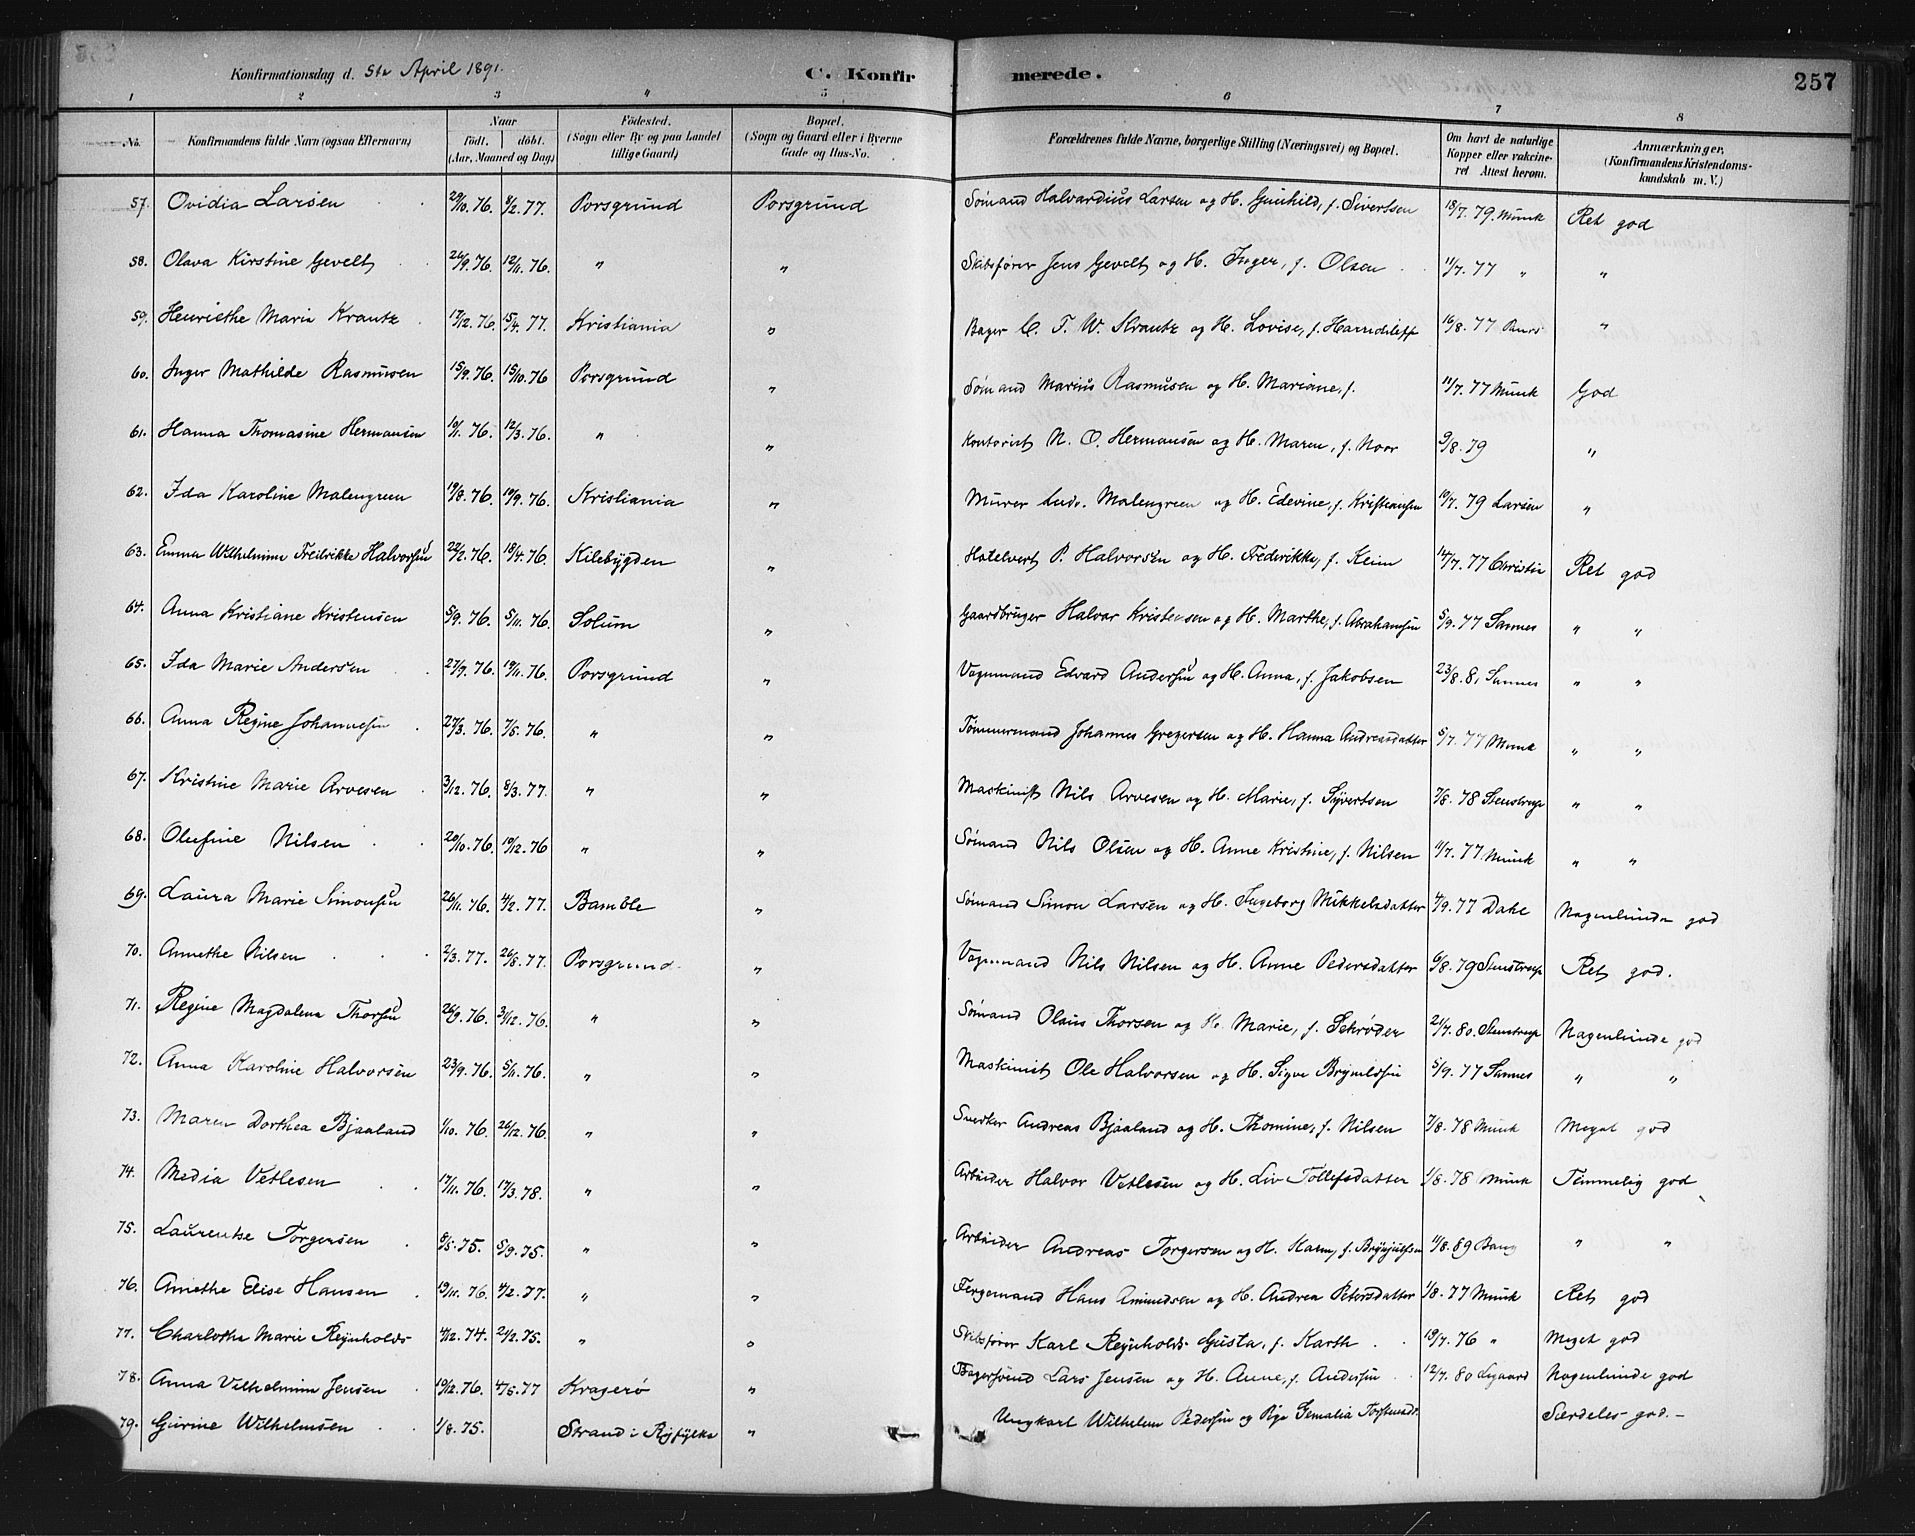 Konfirmationsdag d. 5te April 1891. C. Konfirmerede. 257
1 2 3 4 5 6 7 8
No. Konfirmandens fulde Navn (ogsaa Efternavn) Naar født. døbt. (Aar, Maaned og Dag) Fødested. (Sogn eller By og paa Landet tillige Gaard) Bopæl. (Sogn og Gaard eller i Byerne Gade og Hus-No. Forældrenes fulde Navne, borgerlige Stilling (Næringsvei) og Bopæl. Om havt de naturlige Kopper eller vakcineret Attest herom. Anmærkninger, (Konfirmandens Kristendomskundskab m. V.)
57. Ovidia Larsen 29/10.76. 4/2.77. Porsgrund Porsgrund Sømand Halvardius Larsen og H. Gunhild, f. Sivertsen 18/7.79 Munk Ret god
58. Olava Kirstine Gevelt 26/9.76. 12/11.76. " " Skibsfører Jens Gevelt og H. Inger, f. Olsen 11/7.77 " "
59. Henriethe Maria Krantz 17/12.76. 15/4.77. Kristiania " Bager C. F. W. Krantz og H. Lovise, f. 16/8.77 "
60. Inger Mathilde Rasmusen 15/9.76. 15/10.76 Porsgrund " Sømand Marius Rasmusen og H. Mariane, f. 11/7.77 Munk God
61. Hanna Thomasine Hermansen 10/1.76. 12/3.76. " " Kontorist N. O. Hermansen og H. Maren, f. Noor 9/8.79 "
62. Ida Karoline Malengreen 19/8.76 19/9.76. Kristiania " Murer Ludv. Malengreen og H. Edevine, f. Kristiansen 10/7.79 Larsen "
63. Emma Wilhelmine Fredrikke Halvorsen 22/2.76. 18/4.76 Kilebygden " Hotelvert P. Halvorsen og H. Frederikke, f. Keim 14/7.77 Christie Ret god
64. Anna Kristiane Kristensen 5/9.76. 5/11.76. Solum " Gaardbruger Halvor Kristensen og H. Marthe, f. Abrahamsen 5/9.77 Sannes " "
65. Ida Marie Andersen 27/9.76. 19/11.76. Porsgrund " Vognmand Edvard Andersen og H. Anna, f. Jakobsen 23/8.81 Sannes " "
66. Anna Regine Johannesen 27/3.76. 7/5.76. " " Tømmermand Johannes Gregersen og H. Hanna Andreasdatter 5/7.77 Munk " "
67. Kristine Marie Arvesen 3/12.76. 8/3.77. " " Maskinist Nils Arvesen og H. Marie, f. Syvertsen 7/8.78 Stenstrup " "
68. Olufine Nilsen 20/10.76. 10/12.76 " " Sømand Nils Olsen og H. Anne Kristine, f. Nilsen 11/7.77 Munk " "
69. Laura Marie Simonsen 26/11.76. 4/2.77. Bamble " Sømand Simon Larsen og H. Ingeborg Mikkelsdatter 4/9.77 Dahl Nogenlunde god
70. Annethe Nilsen 2/3.77. 26/8.77. Porsgrund. " Vognmand Nils Nilsen og H. Anne Pedersdatter 6/8.79 Stenstrup Ret god.
71. Regine Magdalena Thorsen 26/9.76. 31/12.76. " " Sømand Olaus Thorsen og H. Marie, f. Schrøder 21/7.80. Stenstrup Nogenlunde god
72. Anna Karoline Halvorsen 23/9.76. 5/11.76. " " Maskinist Ole Halvorsen og H. Signe Brynildsen 5/9.77 Sannes " "
73. Maren Dorthea Bjaaland 1/10.76. 26/12.76. " " Snedker Andreas Bjaaland og H. Thomine, f. Nilsen 7/8.78 Munk Meget god
74. Media Vetlesen 17/11.76. 17/3.78. " " Arbeider Halvor Vetlesen og H. Liv Tollefsdatter 1/8.78 Munk Temmelig god
75. Laurentse Torgersen 8/5.75. 5/9.75. " " Arbeider Andreas Torgersen og H. Karen, f. Brynjulfsen 11/8.89 Bang " "
76. Anethe Elise Hansen 19/11.76. 4/2.77. " " Fergemand Hans Amundsen og H. Andrea Petersdatter 1/8.77 Munk Ret god
77. Charlothe Marie Reynholds 4/12.74. 2/12.75. " " Skibsfører Karl Reynholds Gusta, f. Karth 19/7.76 " Meget god
78. Anna Vilhelmine Jensen 19/12.76. 4/5.77 Kragerø " Bagersvend Lars Jensen og H. Anne, f. Andersen 12/7.80 Nogenlunde god
79. Gurine Wilhelmsen 1/8.75. Strand i Ryfylke " Ungkarl Wilhelm Pedersen og Pige Gemalia Torstensd. Særdeles god.